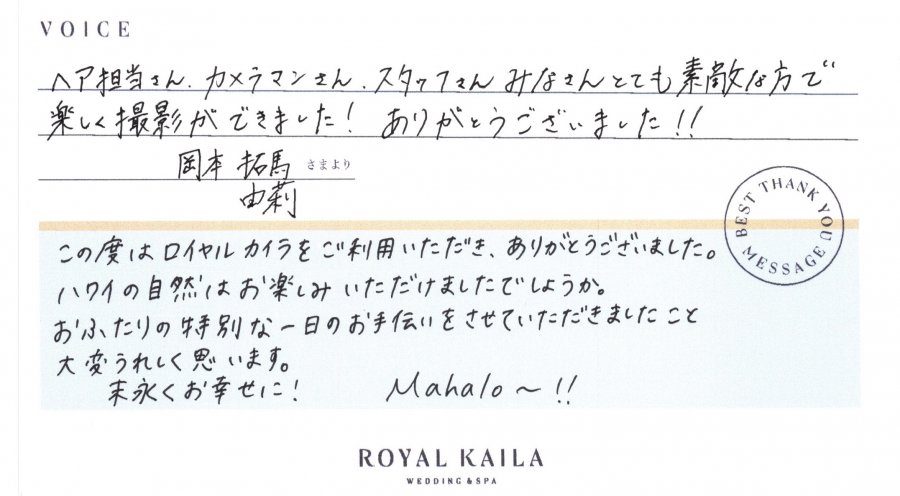 VOICE
ヘア担当さん、カメラマンさん、スタッフさん みなさんとても素敵な方で
楽しく撮影ができました! ありがとうございました!!
岡本 拓馬 さまより
由莉
BEST THANK YOU MESSAGE
この度はロイヤルカイラをご利用いただき、ありがとうございました。
ハワイの自然はお楽しみいただけましたでしょうか。
おふたりの特別な一日のお手伝いをさせていただきましたこと
大変うれしく思います。
末永くお幸せに! Mahalo〜!!
ROYAL KAILA
WEDDING & SPA